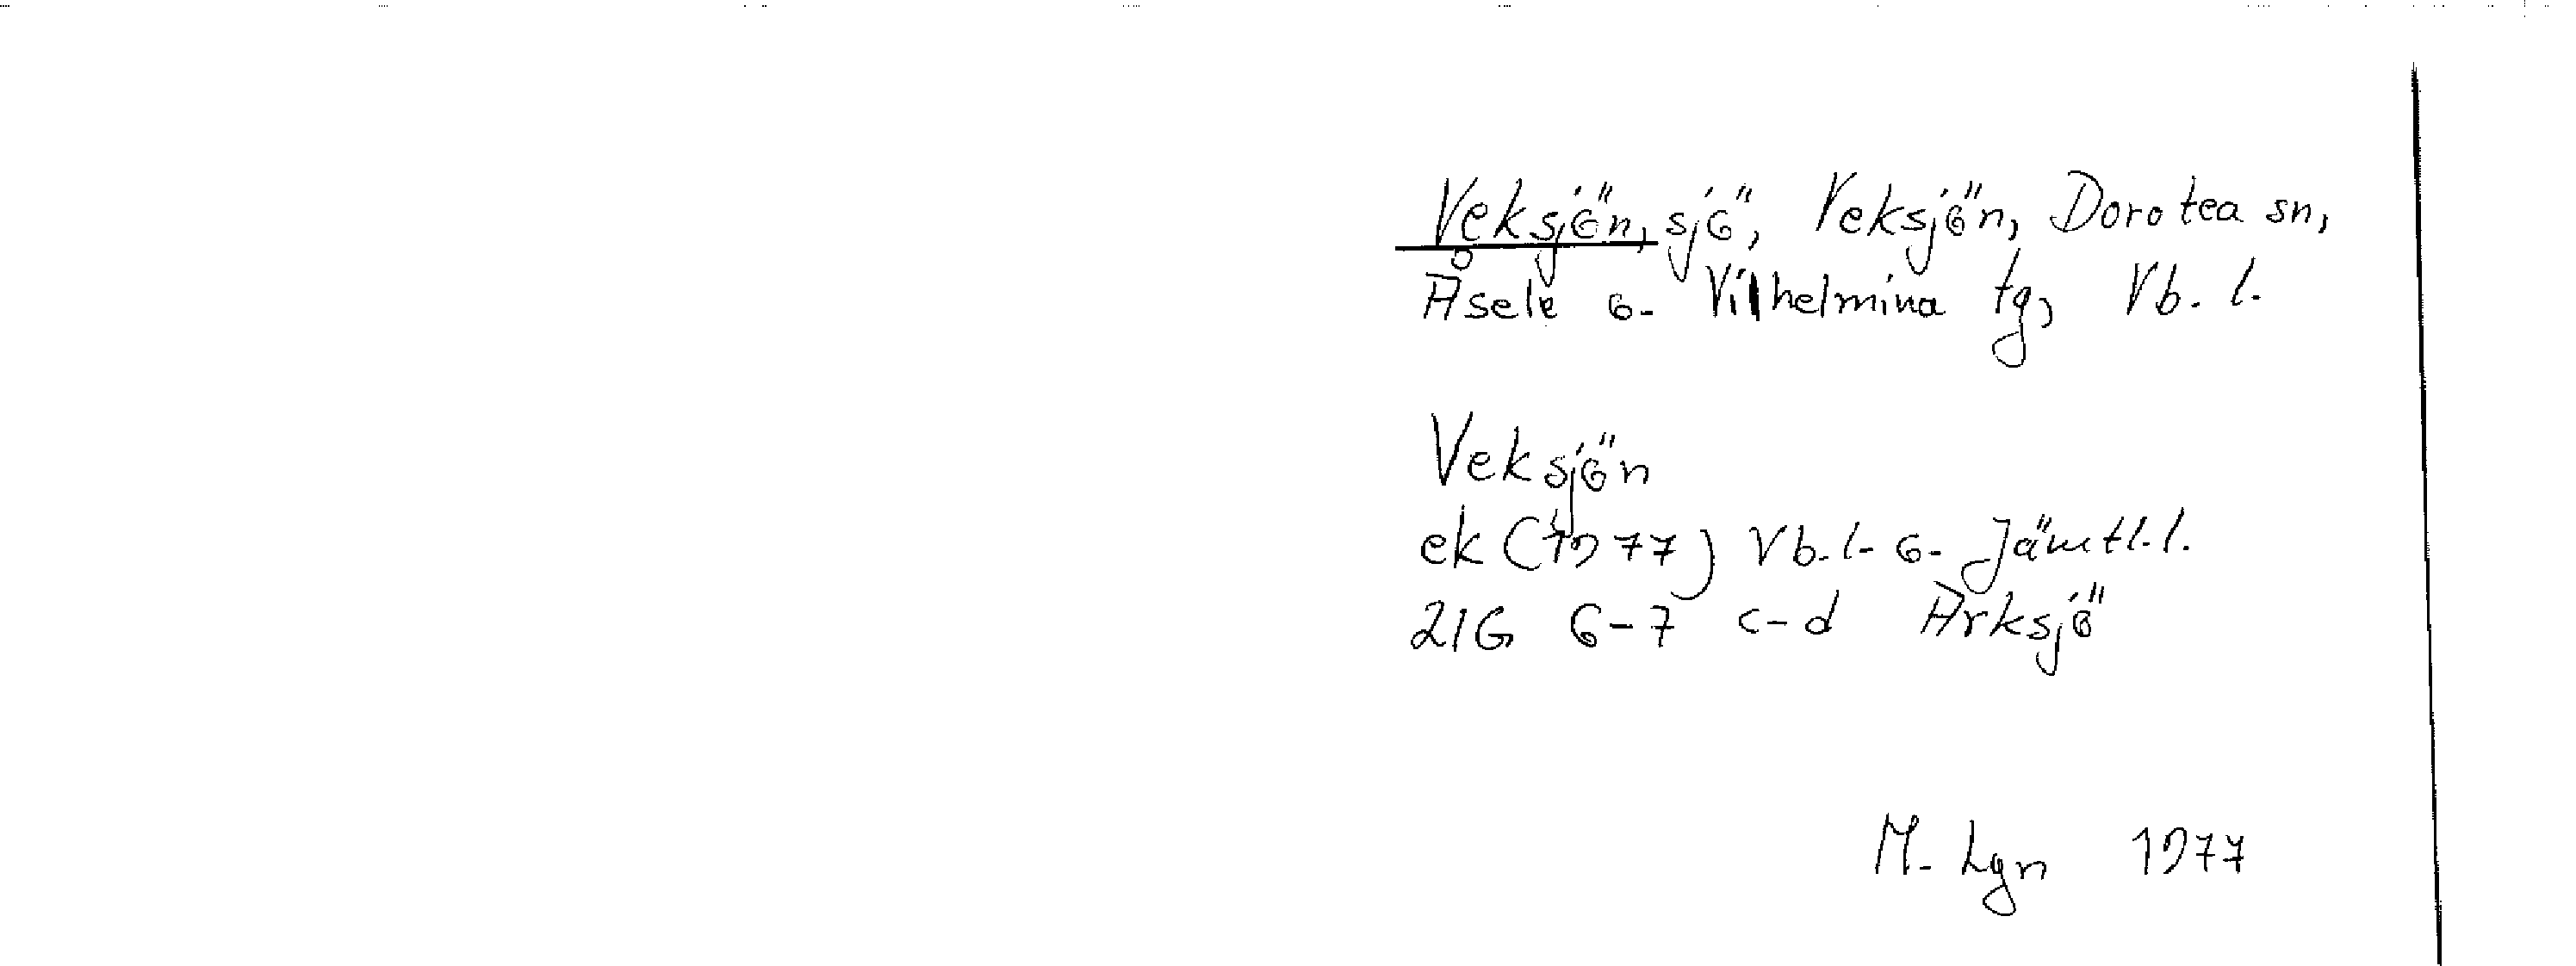 Veksjön, sjö, Veksjön, Dorotea sn,
Åsele o. Vilhelmina tg, Vb. l.
Veksjön
ek (1977) Vb. l. o. Jämtl. l.
21G 6-7 c-d Arksjö
M. Lgn 1977